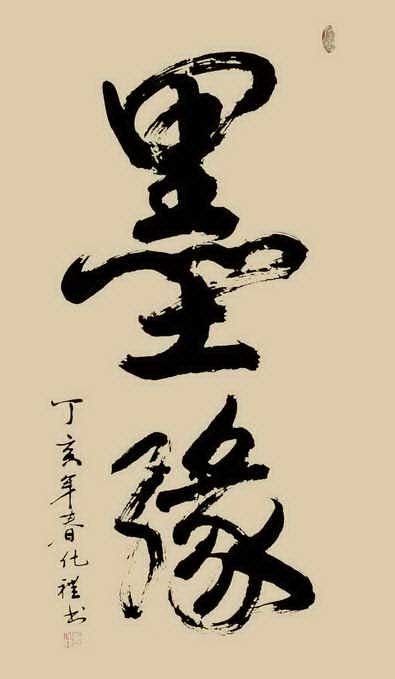 墨缘
丁亥年春化礼书